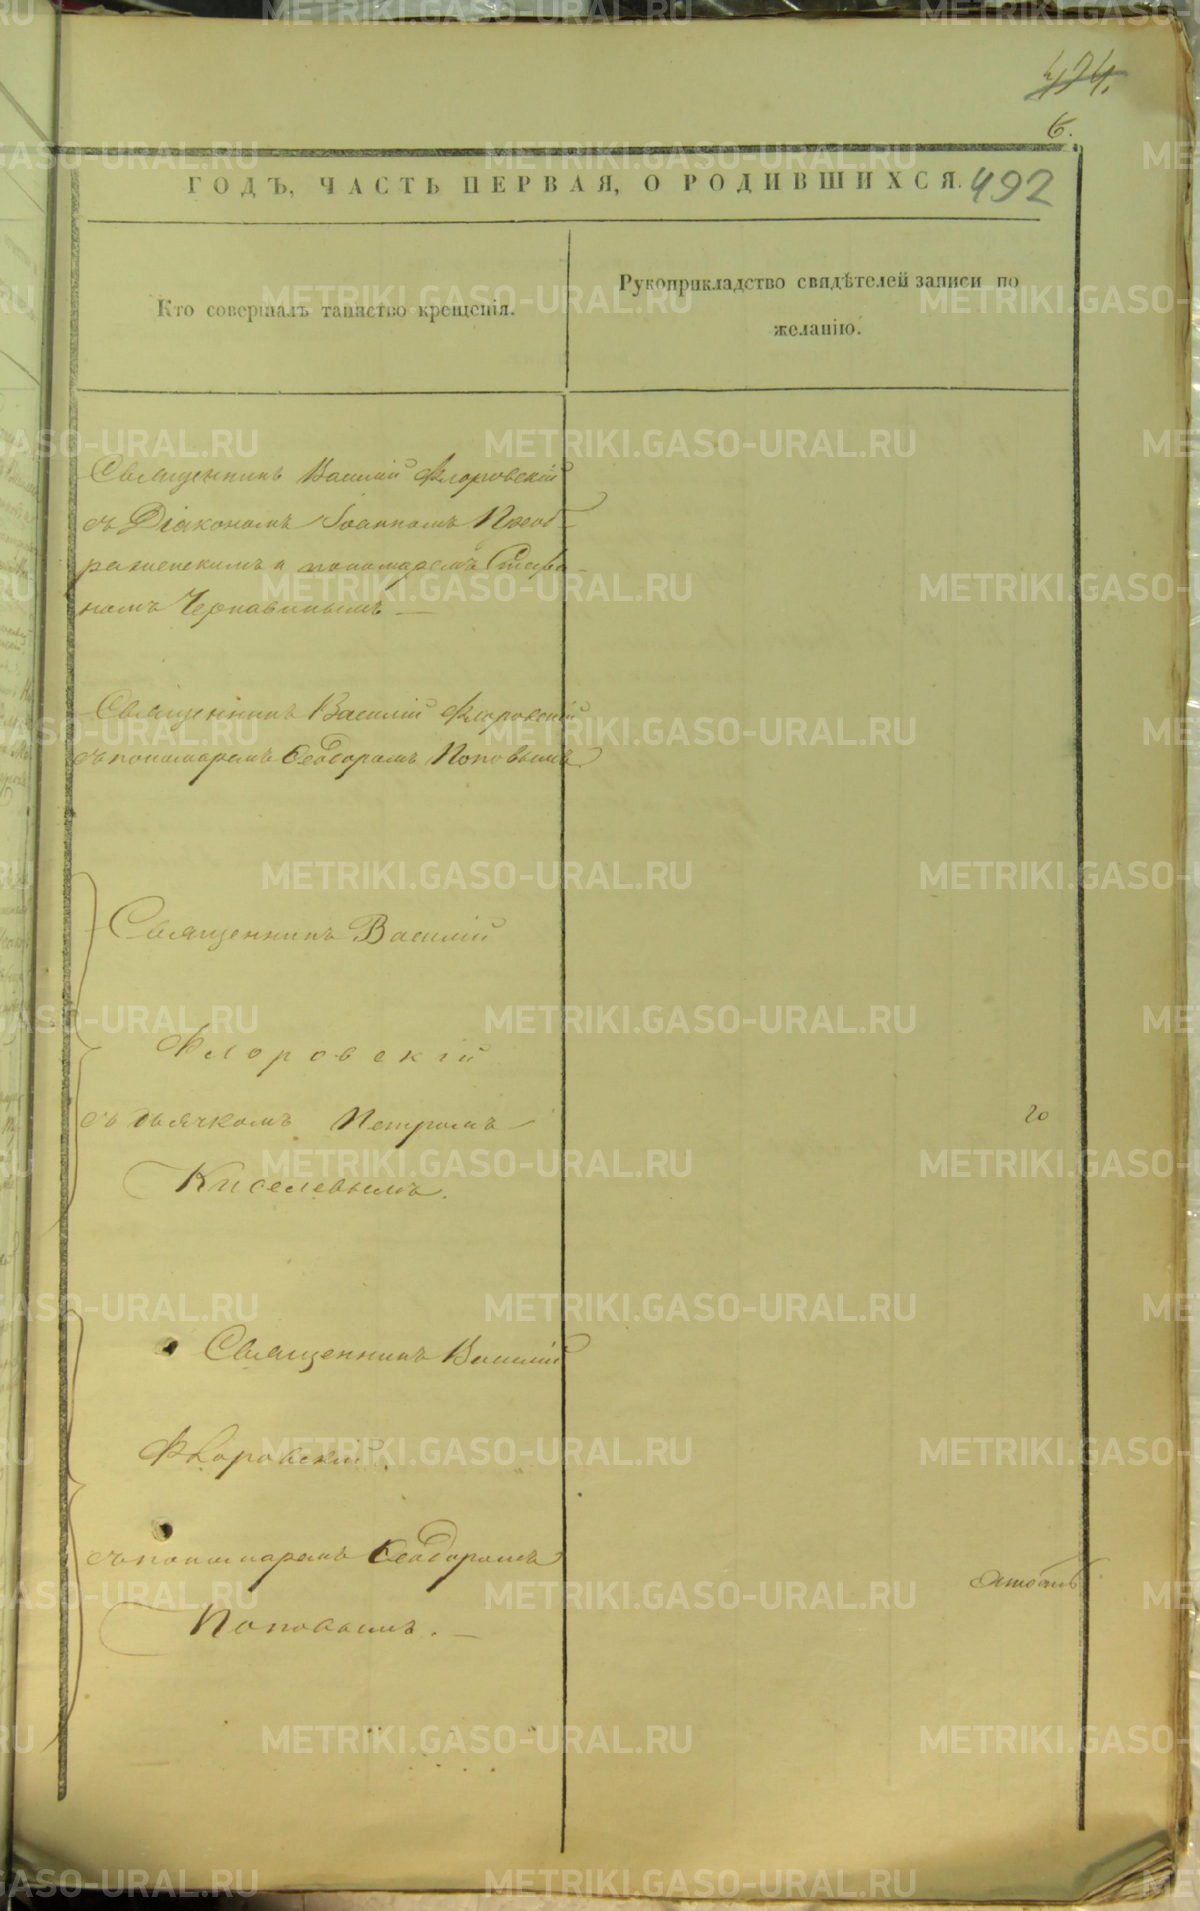 424.
6.
ГОДЪ, ЧАСТЬ ПЕРВАЯ, О РОДИВШИХСЯ.
492
Кто совершалъ таинство крещенія.
Рукоприкладство свидѣтелей записи по
желанію.
Священникъ Василій Флоровскій
съ Діакономъ Іоанномъ Преоб-
раженскимъ и пономаремъ Стефа-
номъ Чернавинымъ —
Священникъ Василій Флоровскій
съ пономаремъ Ѳеодоромъ Поповымъ
Священникъ Василій
Флоровскій
съ дьячкомъ Петромъ
Киселевымъ.
20
Священникъ Василій
Флоровскій.
съ пономаремъ Ѳеодоромъ
Поповымъ. —
METRIKI.GASO-URAL.RU